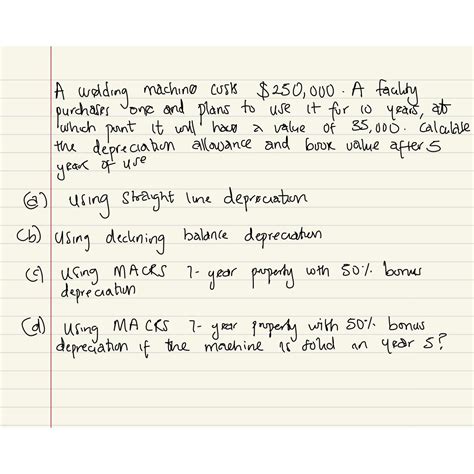 A welding machine costs $250,000. A facility
purchases one and plans to use it for 10 years, at
which point it will have a value of 35,000. Calculate
the depreciation allowance and book value after 5
years of use
(a) using straight line depreciation
(b) using declining balance depreciation
(c) using MACRS 7-year property with 50% bonus
depreciation
(d) using MACRS 7-year property with 50% bonus
depreciation if the machine is sold in year 5?